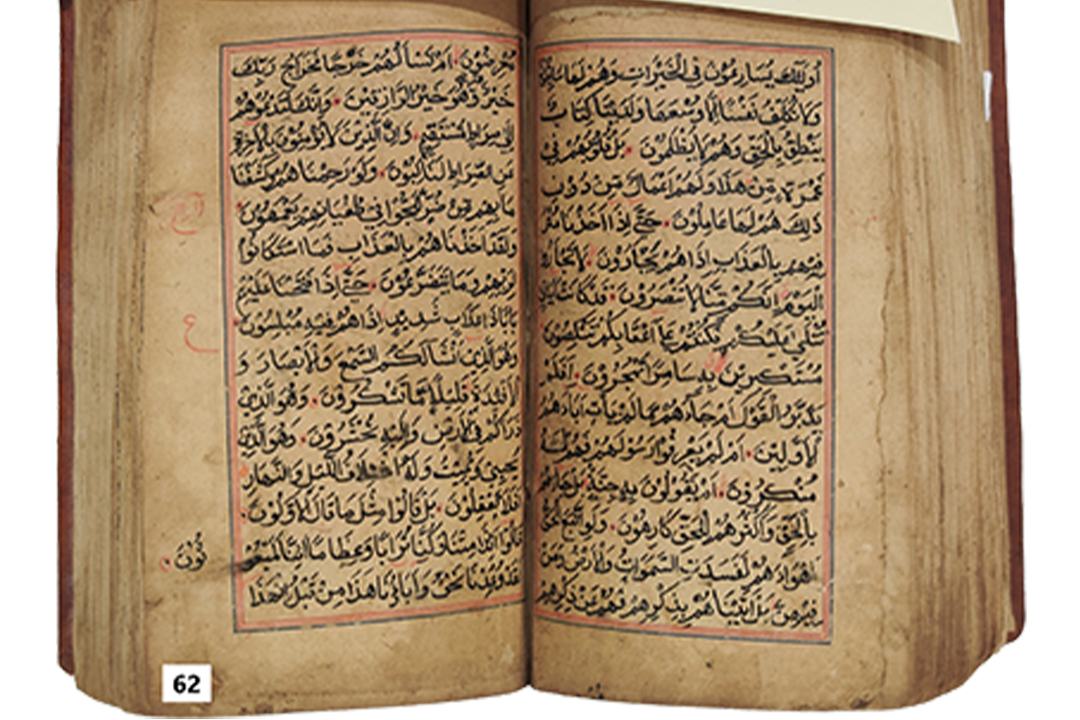 اُولٰئِكَ يُسَارِعُوْنَ فِي الْخَيْرَاتِ وَهُمْ لَهَا سَابِقُوْنَ
وَلَا نُكَلِّفُ نَفْسًا اِلَّا وُسْعَهَا وَلَدَيْنَا كِتَابٌ
يَنْطِقُ بِالْحَقِّ وَهُمْ لَا يُظْلَمُوْنَ بَلْ قُلُوْبُهُمْ فِي
غَمْرَةٍ مِنْ هٰذَا وَلَهُمْ اَعْمَالٌ مِنْ دُوْنِ
ذٰلِكَ هُمْ لَهَا عَامِلُوْنَ حَتّٰى اِذَا اَخَذْنَا مُتْرَ
فِيْهِمْ بِالْعَذَابِ اِذَا هُمْ يَجْاَرُوْنَ لَا تَجْاَرُوا
الْيَوْمَ اِنَّكُمْ مِنَّا لَا تُنْصَرُوْنَ قَدْ كَانَتْ اٰيَاتِيْ
تُتْلٰى عَلَيْكُمْ فَكُنْتُمْ عَلٰى اَعْقَابِكُمْ تَنْكِصُوْنَ
مُسْتَكْبِرِيْنَ بِهِ سَامِرًا تَهْجُرُوْنَ اَفَلَمْ
يَدَّبَّرُوا الْقَوْلَ اَمْ جَاءَهُمْ مَا لَمْ يَأْتِ اٰبَاءَهُمُ
الْاَوَّلِيْنَ اَمْ لَمْ يَعْرِفُوْا رَسُوْلَهُمْ فَهُمْ لَهُ
مُنْكِرُوْنَ اَمْ يَقُوْلُوْنَ بِهِ جِنَّةٌ بَلْ جَاءَهُمْ
بِالْحَقِّ وَاَكْثَرُهُمْ لِلْحَقِّ كَارِهُوْنَ وَلَوِ اتَّبَعَ الْحَقُّ
اَهْوَاءَهُمْ لَفَسَدَتِ السَّمٰوَاتُ وَالْاَرْضُ وَمَنْ
فِيْهِنَّ بَلْ اَتَيْنَاهُمْ بِذِكْرِهِمْ فَهُمْ عَنْ ذِكْرِهِمْ
مُعْرِضُوْنَ اَمْ تَسْاَلُهُمْ خَرْجًا فَخَرَاجُ رَبِّكَ
خَيْرٌ وَهُوَ خَيْرُ الرَّازِقِيْنَ وَاِنَّكَ لَتَدْعُوْهُمْ
اِلٰى صِرَاطٍ مُسْتَقِيْمٍ وَاِنَّ الَّذِيْنَ لَا يُؤْمِنُوْنَ بِالْاٰخِرَةِ
عَنِ الصِّرَاطِ لَنَاكِبُوْنَ وَلَوْ رَحِمْنَاهُمْ وَكَشَفْنَا
مَا بِهِمْ مِنْ ضُرٍّ لَلَجُّوْا فِيْ طُغْيَانِهِمْ يَعْمَهُوْنَ
وَلَقَدْ اَخَذْنَاهُمْ بِالْعَذَابِ فَمَا اسْتَكَانُوْا
لِرَبِّهِمْ وَمَا يَتَضَرَّعُوْنَ حَتّٰى اِذَا فَتَحْنَا عَلَيْهِمْ
بَابًا ذَا عَذَابٍ شَدِيْدٍ اِذَا هُمْ فِيْهِ مُبْلِسُوْنَ
ع
وَهُوَ الَّذِيْ اَنْشَاَ لَكُمُ السَّمْعَ وَالْاَبْصَارَ وَ
الْاَفْئِدَةَ قَلِيْلًا مَا تَشْكُرُوْنَ وَهُوَ الَّذِيْ
ذَرَاَكُمْ فِي الْاَرْضِ وَاِلَيْهِ تُحْشَرُوْنَ وَهُوَ الَّذِيْ
يُحْيِيْ وَيُمِيْتُ وَلَهُ اخْتِلَافُ اللَّيْلِ وَالنَّهَارِ
اَفَلَا تَعْقِلُوْنَ بَلْ قَالُوْا مِثْلَ مَا قَالَ الْاَوَّلُوْنَ
قَالُوْا اَئِذَا مِتْنَا وَكُنَّا تُرَابًا وَعِظَامًا اَئِنَّا لَمَبْعُوْ
ثُوْنَ
لَقَدْ وُعِدْنَا نَحْنُ وَاٰبَاؤُنَا هٰذَا مِنْ قَبْلُ اِنْ هٰذَا
62